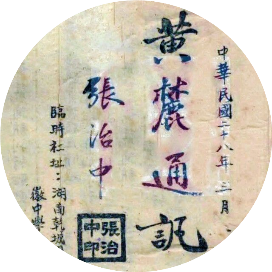 中華民國二十八年三月
黃麓通訊
張治中
張治中印
臨時社址：湖南乾城
徽中學